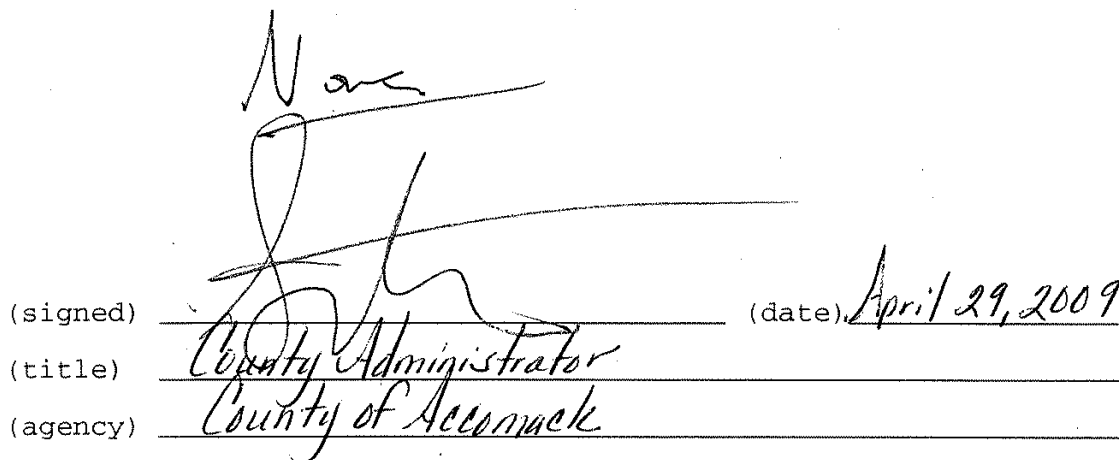 None
(signed) (date) April 29, 2009
(title) County Administrator
(agency) County of Accomack